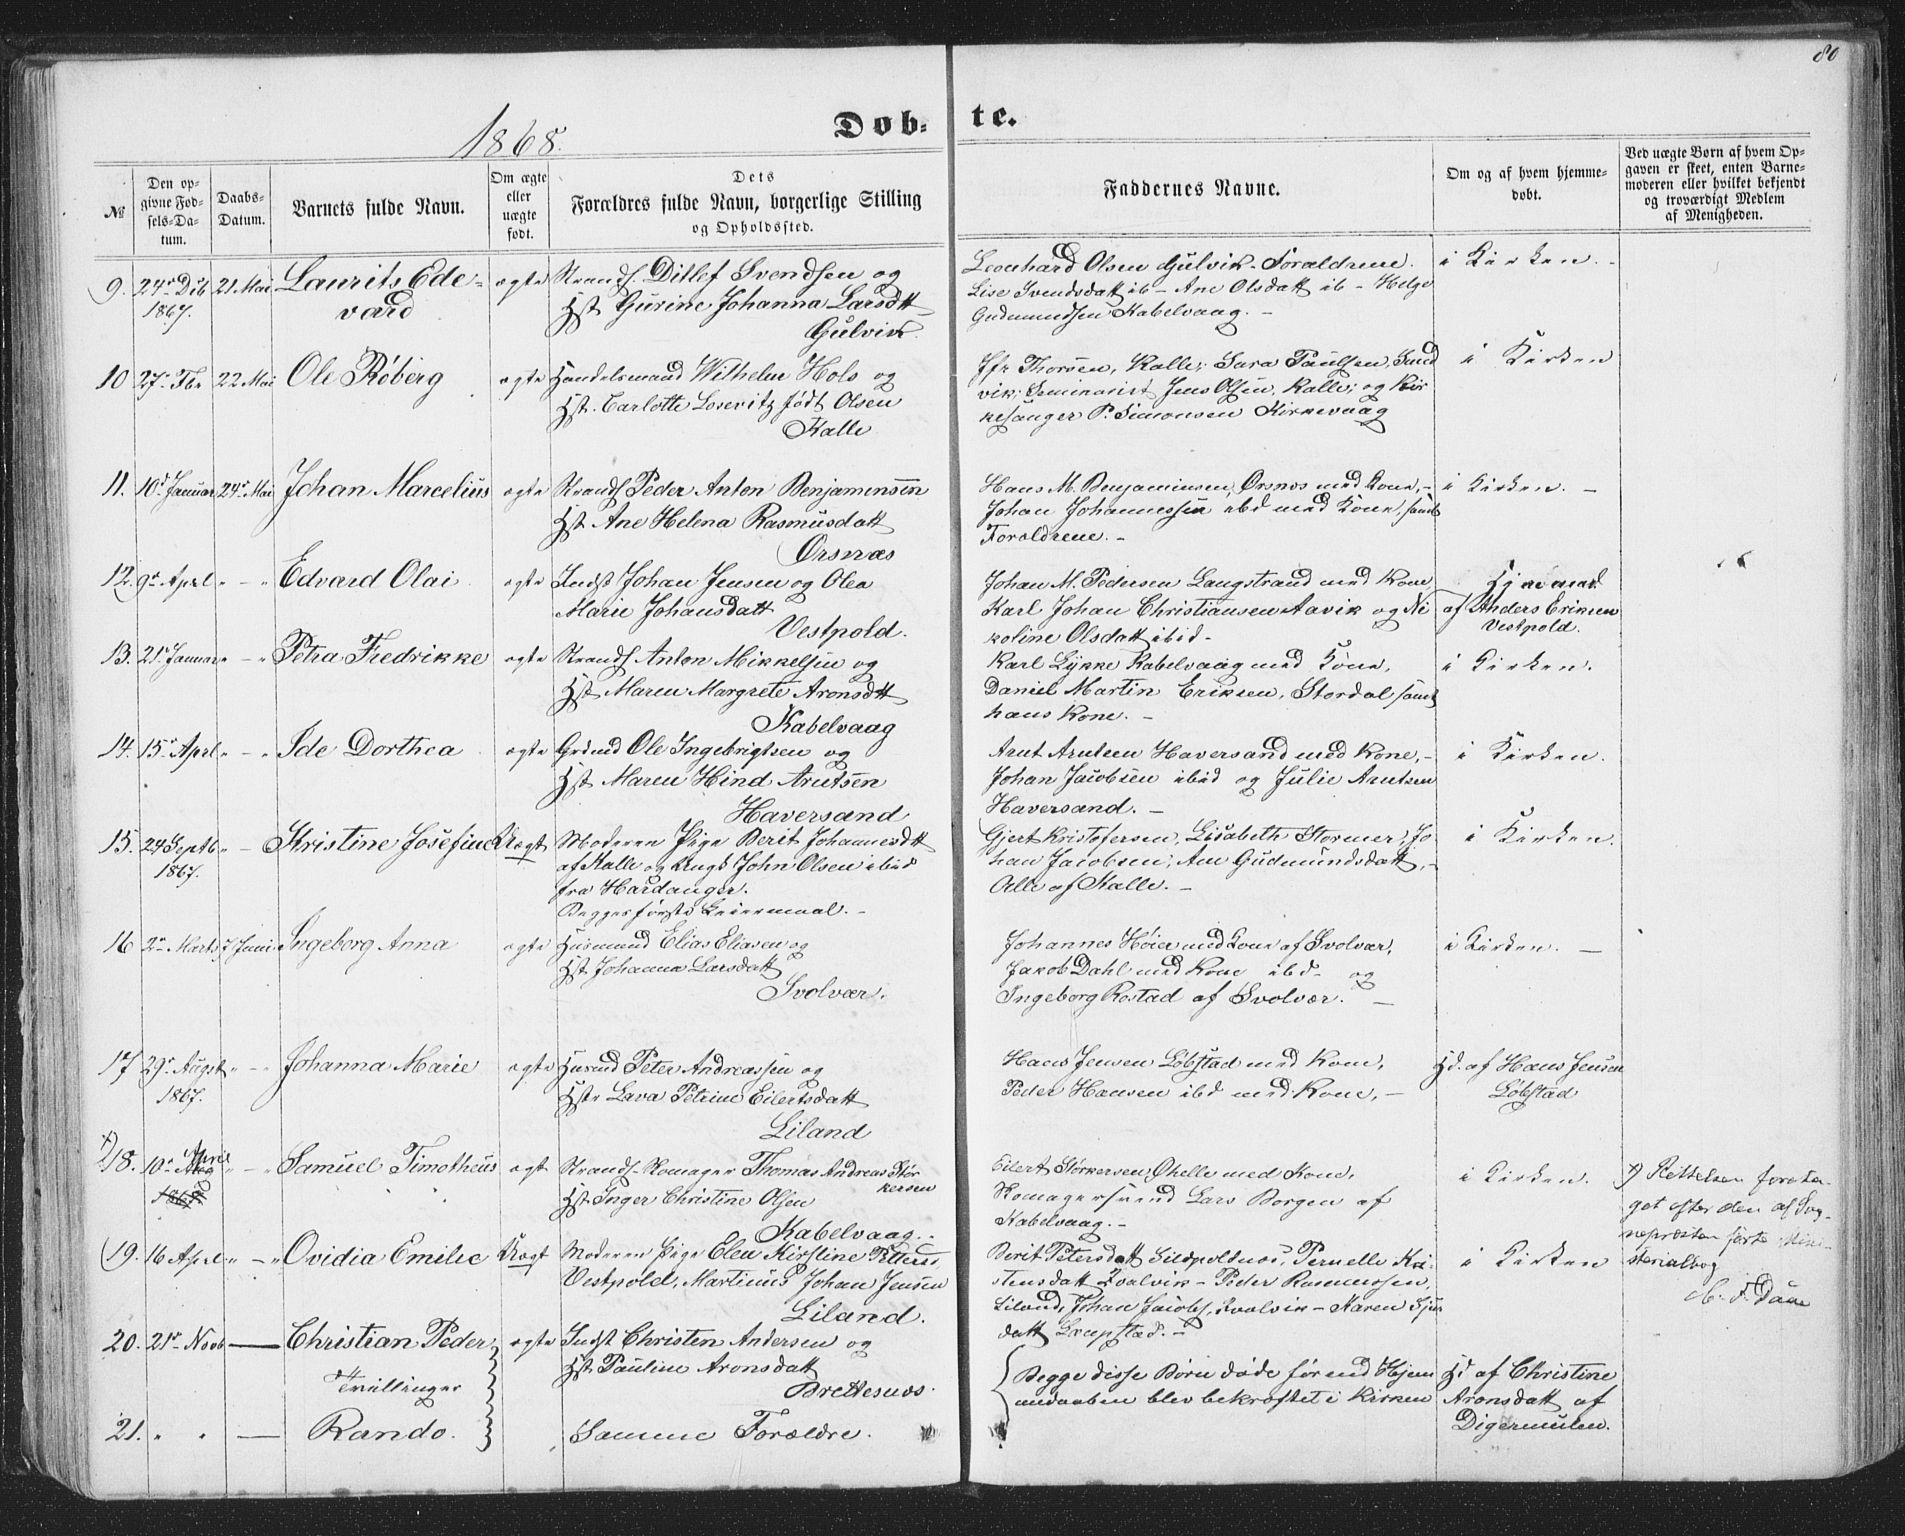 80
1868.
Døb-
te.
№
Den op-
givne Fød-
sels-Da-
tum.
Daabs-
Datum.
Barnets fulde Navn.
Om ægte
eller
uægte
født.
Dets
Forældres fulde Navn, borgerlige Stilling
og Opholdssted.
Faddernes Navne.
Om og af hvem hjemme-
døbt.
Ved uægte Børn af hvem Op-
gaven er skeet, enten Barne-
moderen eller hvilket bekjendt
og troværdigt Medlem
af Menigheden.
9. 24de Dcb 21 Mai Laurits Ede- ægte Strands. Ditlef Svendsen og
1867. vard Hst Gurine Johanna Larsdtt
Gulvik.
Leonhard Olsen Gulvik - Forældrene. i Kirken. -
Lise Svendsdatt ib - Ane Olsdatt ib - Helge
Gudmundsen Kabelvaag. -
10 27de Fbr 22 Mai Ole Røberg ægte Handelsmand Wilhelm Hols og
Hst. Carlotte Losevitz født Olsen
Kalle
Jfr Thorsen, Kalle; Sara Paulsen, Sund i Kirken
vik; Seminarist Jens Olsen, Kalle; og Kir
kesanger P. Simonsen Kirkevaag
11. 10d Januar 24de Mai Johan Marcelius ægte Strands Peder Anton Benjaminsen
Hst Ane Helena Rasmusdatt
Ørsnæs
Hans M. Benjaminsen, Ørsnæs med Kone, - i Kirken. -
Johan Johannessen ibd med Kone, samt
Forældrene. -
12. 9de April " - " Edvard Olai ægte Indst Johan Jensen og Olea
Marie Johansdatt
Vestpold.
Johan M. Pedersen Langstrand med Kone
Karl Johan Christiansen Aavik og Ni af Anders Eriksen
koline Olsdatt ibid - Vestpold.
13. 21de Januar " - " Petra Fredrikke ægte Strands Anton Mikkelsen og
Hst Maren Margrete Aronsdtt
Kabelvaag
Karl Lykke Kabelvaag med Kone, i Kirken.
Daniel Martin Eriksen, Stordal samt
hans Kone. -
14. 15de April " - " Ide Dorthea ægte Grdmd Ole Ingebrigtsen og
Hst Maren Hind Arntsen
Haversand
Arnt Arntsen Haversand med Kone, - i Kirken.
Johan Jacobsen ibid og Julie Arntsen
Haversand. -
15. 24 Septb " - Kristine Josefine Uægt Moderen Pige Berit Johannesdtt
1867. af Kalle og Ungk John Olsen ibid
fra Hardanger.
Begges første Leiermaal. -
Gjert Kristofersen, Lisabeth Stormer, Jo- i Kirken.
han Jacobsen, Ane Gudmundsdatt, -
Alle af Kalle. -
16 2de Marts 7 Juni Ingeborg Anna ægte Husmand Elias Eliasen og
Hst Johanna Larsdatt
Svolvær.
Johannes Høier med Kone af Svolvær, i Kirken. -
Jakob Dahl med Kone ibd - og
Ingeborg Rostad af Svolvær. -
17 29de Augst " - " Johanna Marie ægte Husmd Peter Andreassen og
1867. Hst Lava Petrine Eilertsdatt
Liland
Hans Jensen Løbstad med Kone, Hd. af Hans Jensen
Peder Hansen ibd med Kone, - Løbstad
18. 10de April " - " Samuel Timotheus ægt Strands. Komager Thomas Andreas Stør
1867 kersen
Hst Inger Christine Olsen
Kabelvaag. -
Eilert Størkersen, Ohelle med Kone, i Kirken.
Komagersvend Lars Borgen af
Kabelvaag. -
Rettelsen foreta-
get efter den af Sog-
nepresten førte Mini-
sterialbog
19. 16 April " - " Ovidia Emilie Uægt Moderen Pige Elen Kirstine
Vestpold, Martinus Johan Jensen
Liland.
Berit Petersdatt Sildpoldnæs, Pernelle Kri- i Kirken
stensdatt - Peder Rasmussen
Liland, Johan Jacobs, - Karen
datt Laupstad. -
20. 21de Novb — Christian Peder, ægte Indst Christen Andersen og
Hst Pauline Aronsdatt
Brettesnæs.
Trillinger
Begge disse Børn døde før end Hjem Hd af Christine
medaaben blev bekræftet i Kirken Aronsdatt af
Digermulen.
21. " " — Rando. Samme Forældre.